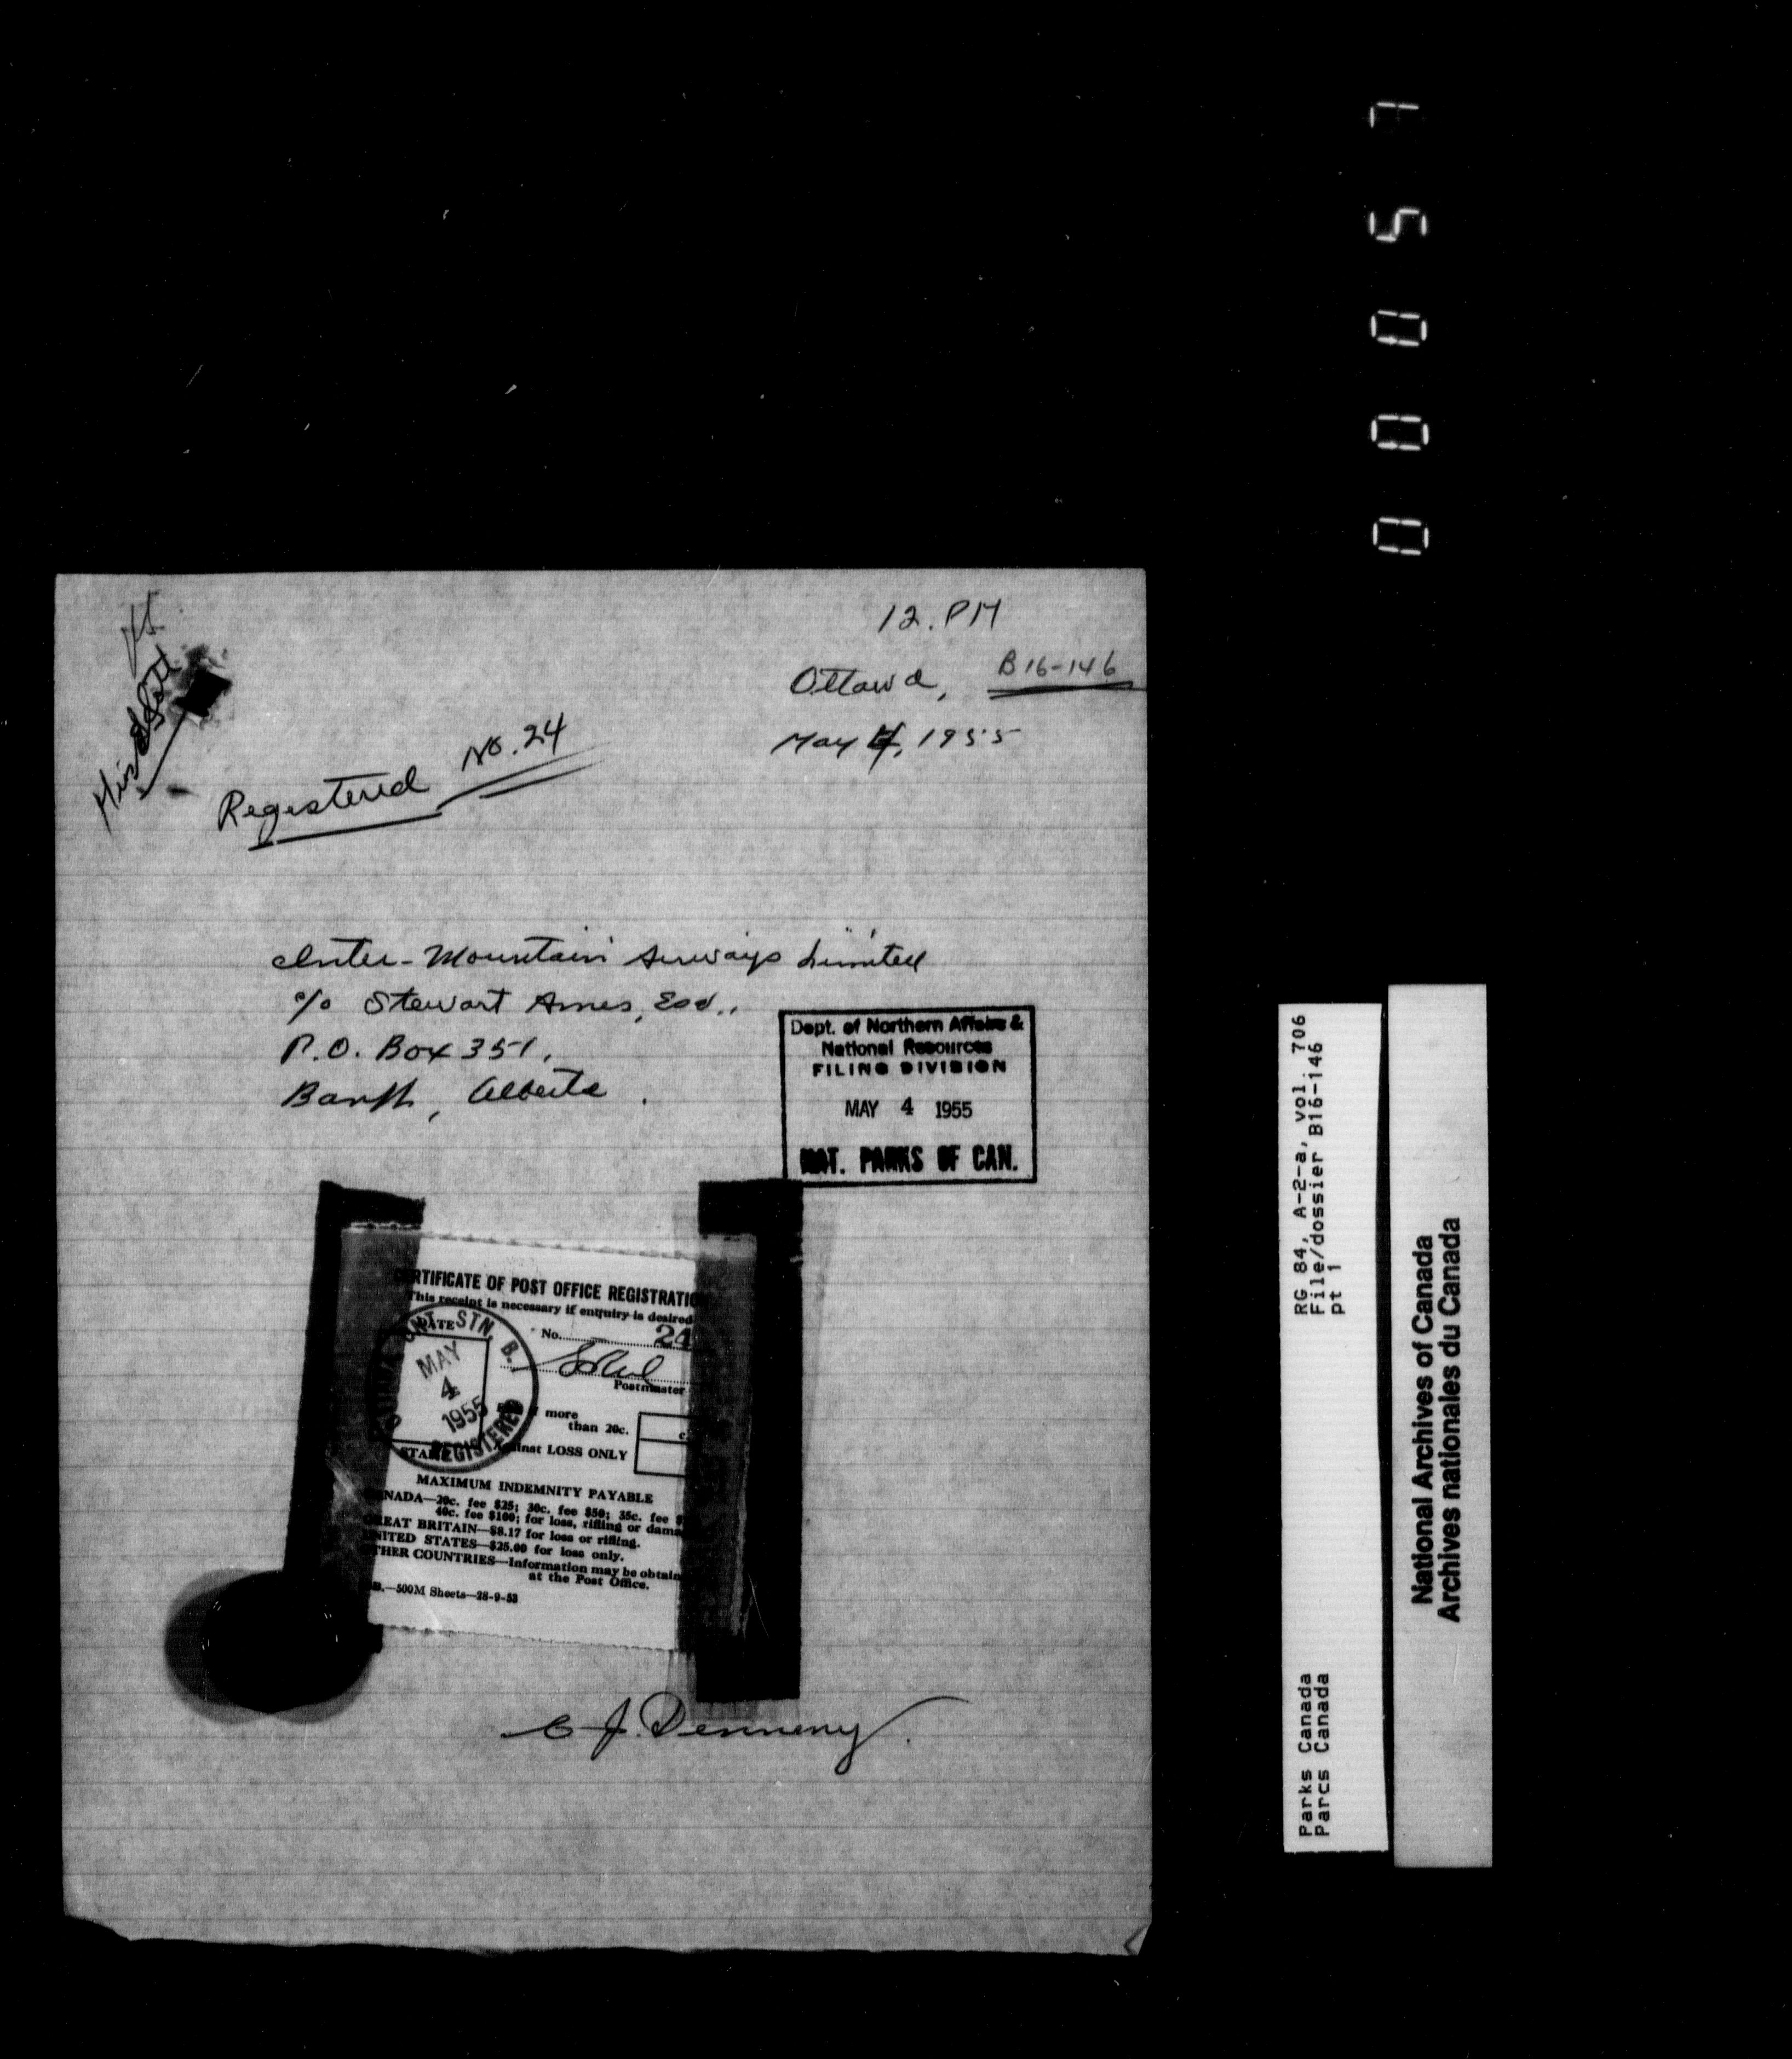 12. PM
Ottawa, B16-146
May 4, 1955
Registered No. 24
Inter-Mountain Airways Limited
c/o Stewart Ames, Esq.,
P.O. Box 351,
Banff, Alberta.
Dept. of Northern Affairs &
National Resources
FILING DIVISION
MAY 4 1955
NAT. PARKS OF CAN.
CERTIFICATE OF POST OFFICE REGISTRATION
This receipt is necessary if enquiry is desired
DATE
No. 24
Postmaster
STN. B.
MAY
4
1955
REGISTERED
more
than 20c.
c.
STAMP
against LOSS ONLY
MAXIMUM INDEMNITY PAYABLE
CANADA—20c. fee $25; 30c. fee $50; 35c. fee $
40c. fee $100; for loss, rifling or dama
GREAT BRITAIN—$8.17 for loss or rifling.
UNITED STATES—$25.00 for loss only.
OTHER COUNTRIES—Information may be obtain
at the Post Office.
—500M Sheets—28-9-53
C J. Denneny.
00057
RG 84, A-2-a, vol. 706
File/dossier B16-146
pt 1
Parks Canada
Parcs Canada
National Archives of Canada
Archives nationales du Canada